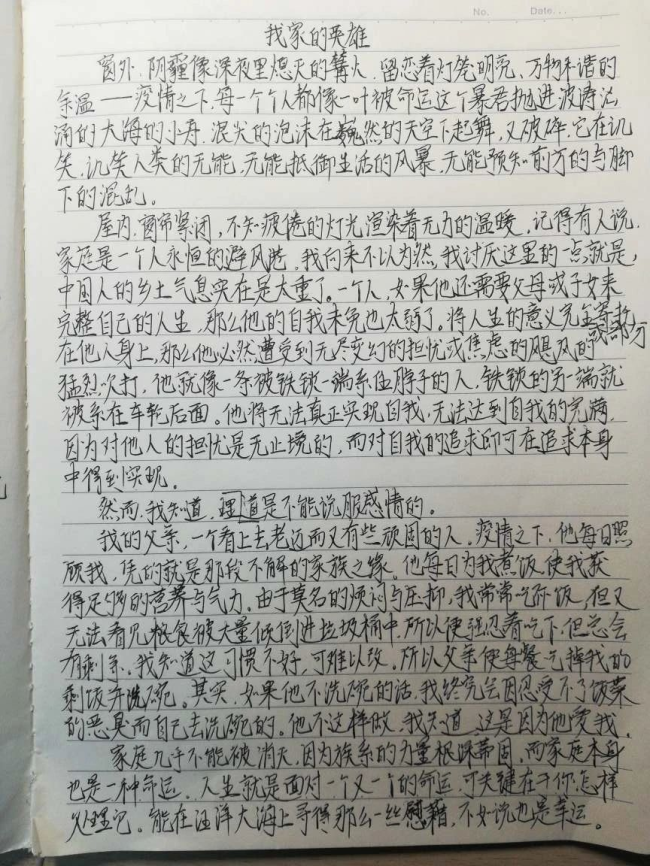 No. Date...
我家的英雄
窗外,阴霾像深夜里熄灭的篝火,留恋着灯笼明亮、万物和谐的
余温——疫情之下,每一个人都像一叶被命运这个暴君抛进波涛汹
涌的大海的小舟,浪尖的泡沫在巍然的天空下起舞,又破碎,它在讥
笑,讥笑人类的无能,无能抵御生活的风暴,无能预知前方的与脚
下的混乱。
屋内,窗帘紧闭,不知疲倦的灯光渲染着无力的温暖,记得有人说,
家庭是一个人永恒的避风港,我向来不以为然,我讨厌这里的一点就是,
中国人的乡土气息实在是太重了。一个人,如果他还需要父母或子女来
完整自己的人生,那么他的自我未免也太弱了。将人生的意义完全等托
或部分
在他人身上,那么他必然遭受到无尽变幻的担忧或焦虑的飓风的
猛烈吹打,他就像一条被铁锁一端系住脖子的人,铁锁的另一端就
被系在车轮后面。他将无法真正实现自我,无法达到自我的充满,
因为对他人的担忧是无止境的,而对自我的追求即可在追求本身
中得到实现。
然而,我知道,理道是不能说服感情的。
我的父亲,一个看上去老迈而又有些顽固的人,疫情之下,他每日照
顾我,凭的就是那段不解的家族之缘。他每日为我煮饭,使我获
得足够的营养与气力。由于莫名的烦闷与压抑,我常常吃不下饭,但又
无法看见粮食被大量倾倒进垃圾桶中,所以便强忍着吃下,但总会
有剩余。我知道这习惯不好,可难以改,所以父亲便每餐吃掉我的
剩饭并洗碗。其实,如果他不洗碗的话,我终究会因忍受不了饭菜
的恶臭而自己去洗碗的。他不这样做,我知道,这是因为他爱我。
家庭几乎不能被消灭,因为族系的力量根深蒂固,而家庭本身
也是一种命运。人生就是面对一个又一个的命运,可关键在于你怎样
处理它。能在汪洋大海上寻得那么一丝慰藉,不如说也是幸运。